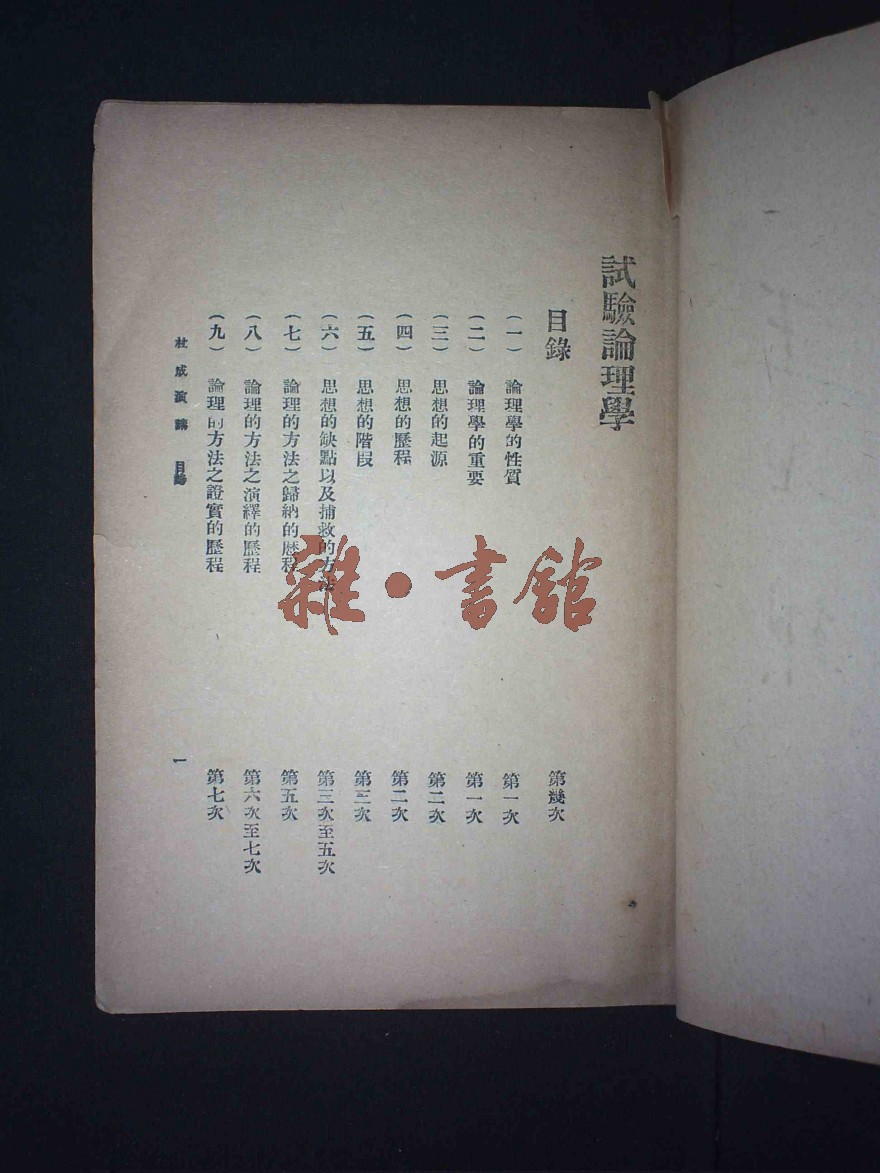 試驗論理學
目錄
第幾次
(一) 論理學的性質
第一次
(二) 論理學的重要
第一次
(三) 思想的起源
第二次
(四) 思想的歷程
第二次
(五) 思想的階段
第三次
(六) 思想的缺點以及捕救的方法
第三次至五次
(七) 論理的方法之歸納的歷程
第五次
(八) 論理的方法之演繹的歷程
第六次至七次
(九) 論理的方法之證實的歷程
第七次
杜威演講 目錄
一
雜·書館